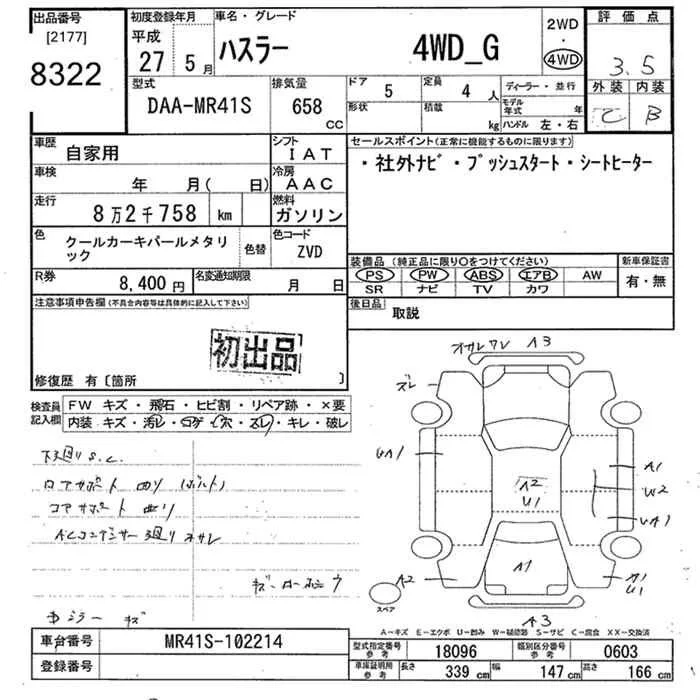 出品番号
[2177]
8322
初度登録年月
平成
27 5月
車名・グレード
ハスラー 4WD_G
2WD
4WD
評価点
3.5
外装 内装
C B
型式
DAA-MR41S
排気量
658 CC
ドア 5
形状
定員 4 人
積載 kg
ディーラー・並行
モデル年式 年
ハンドル 左・右
車歴 自家用
シフト IAT
車検 年 月( 日)
冷房 AAC
走行 8万2千758 km
燃料 ガソリン
色 クールカーキパールメタリック
色替
色コード ZVD
R券 8,400円
名変通知期限 月 日
セールスポイント(正常に機能するものに限ります)
・社外ナビ・プッシュスタート・シートヒーター
装備品(純正品に限り○をつけてください)
PS PW ABS エアB AW
SR ナビ TV カワ
新車保証書
有・無
後日品 取説
注意事項申告欄(不具合内容等は具体的に記入して下さい)
初出品
修復歴 有〔箇所 〕
検査員記入欄
FW キズ・飛石・ヒビ割・リペア跡・×要
内装 キズ・汚レ・コゲ・穴・スレ・キレ・破レ
下廻り S.C.
コアサポート 曲り
オサレ ワレ A3
ズレ
UA1
A1
W2
UA1
A2
U1
A1
A2
A1
U1
スペア
A3
キズ
A−キズ E−エクボ U−凹み W−補修跡 S−サビ C−腐食 XX−交換済
車台番号 MR41S-102214
登録番号
型式指定番号 参考 18096
類別区分番号 参考 0603
車庫証明用 参考 長さ 339 cm 幅 147 cm 高さ 166 cm